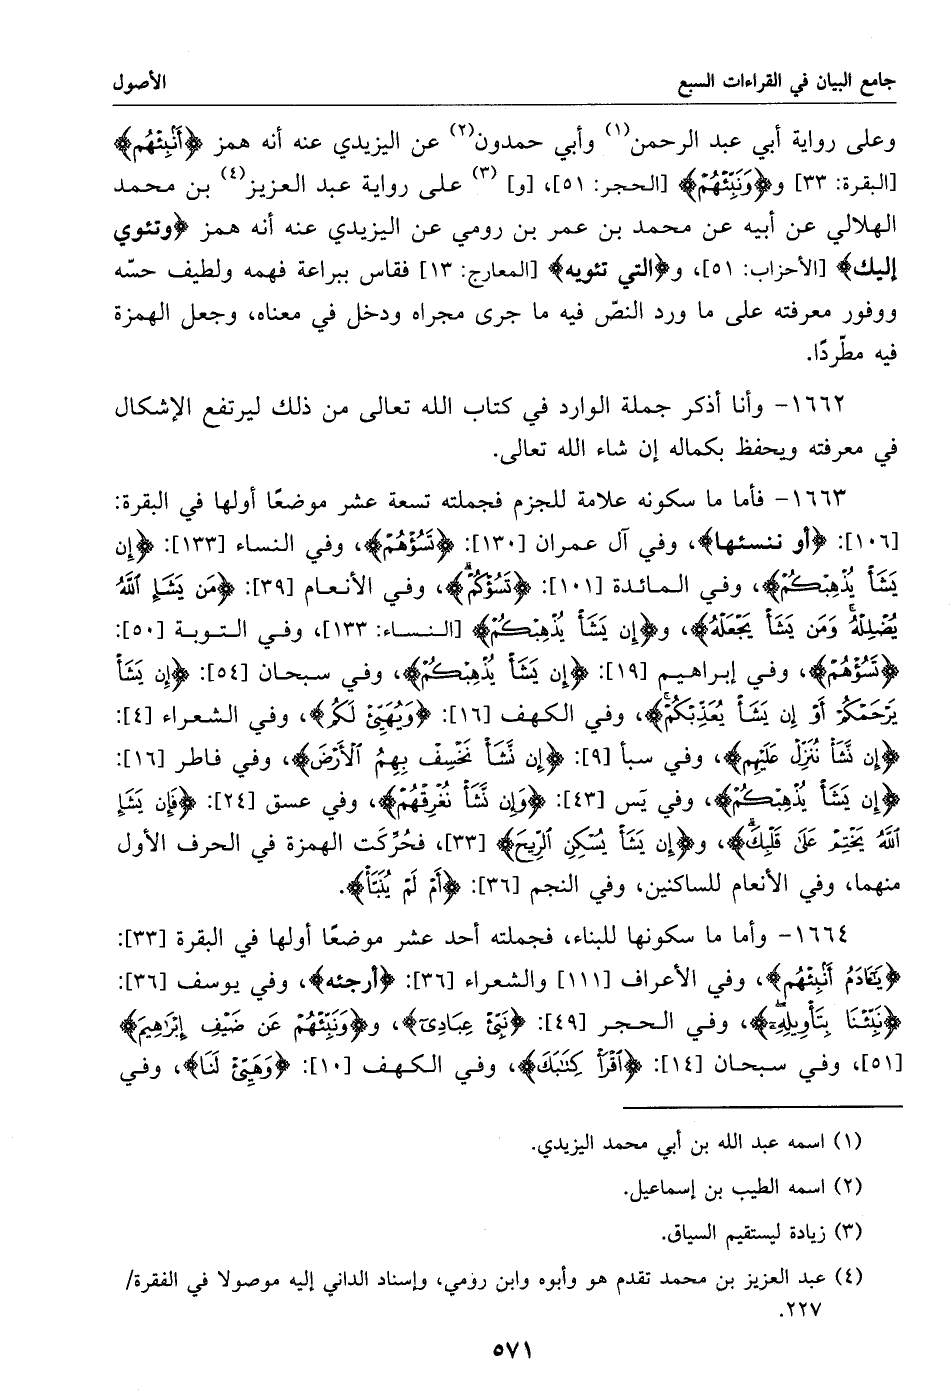 جامع البيان في القراءات السبع الأصول
وعلى رواية أبي عبد الرحمن(١) وأبي حمدون(٢) عن اليزيدي عنه أنه همز ﴿أَنۢبِئْهُم﴾
[البقرة: ٣٣] و﴿وَنَبِّئْهُمْ﴾ [الحجر: ٥١]، [و] (٣) على رواية عبد العزيز(٤) بن محمد
الهلالي عن أبيه عن محمد بن عمر بن رومي عن اليزيدي عنه أنه همز ﴿وتئوي
إليك﴾ [الأحزاب: ٥١]، و﴿التي تئويه﴾ [المعارج: ١٣] فقاس ببراعة فهمه ولطيف حسّه
ووفور معرفته على ما ورد النصّ فيه ما جرى مجراه ودخل في معناه، وجعل الهمزة
فيه مطّردًا.
١٦٦٢- وأنا أذكر جملة الوارد في كتاب الله تعالى من ذلك ليرتفع الإشكال
في معرفته ويحفظ بكماله إن شاء الله تعالى.
١٦٦٣- فأما ما سكونه علامة للجزم فجملته تسعة عشر موضعًا أولها في البقرة:
[١٠٦]: ﴿أو ننسئها﴾، وفي آل عمران [١٣٠]: ﴿تَسُؤْهُمْ﴾، وفي النساء [١٣٣]: ﴿إِن
يَشَأْ يُذْهِبْكُمْ﴾، وفي المائدة [١٠١]: ﴿تَسُؤْكُمْۖ﴾، وفي الأنعام [٣٩]: ﴿مَن يَشَإِ ٱللَّهُ
يُضْلِلْهُۚ وَمَن يَشَأْ يَجْعَلْهُ﴾، و﴿إِن يَشَأْ يُذْهِبْكُمْ﴾ [النساء: ١٣٣]، وفي التوبة [٥٠]:
﴿تَسُؤْهُمْ﴾، وفي إبراهيم [١٩]: ﴿إِن يَشَأْ يُذْهِبْكُمْ﴾، وفي سبحان [٥٤]: ﴿إِن يَشَأْ
يَرْحَمْكُمْ أَوْ إِن يَشَأْ يُعَذِّبْكُمْۚ﴾، وفي الكهف [١٦]: ﴿وَيُهَيِّئْ لَكُم﴾، وفي الشعراء [٤]:
﴿إِن نَّشَأْ نُنَزِّلْ عَلَيْهِم﴾، وفي سبأ [٩]: ﴿إِن نَّشَأْ نَخْسِفْ بِهِمُ ٱلْأَرْضَ﴾، وفي فاطر [١٦]:
﴿إِن يَشَأْ يُذْهِبْكُمْ﴾، وفي يَس [٤٣]: ﴿وَإِن نَّشَأْ نُغْرِقْهُمْ﴾، وفي عسق [٢٤]: ﴿فَإِن يَشَإِ
ٱللَّهُ يَخْتِمْ عَلَىٰ قَلْبِكَۗ﴾، و﴿إِن يَشَأْ يُسْكِنِ ٱلرِّيحَ﴾ [٣٣]، فحُرِّكَت الهمزة في الحرف الأول
منهما، وفي الأنعام للساكنين، وفي النجم [٣٦]: ﴿أَمْ لَمْ يُنَبَّأْ﴾.
١٦٦٤- وأما ما سكونها للبناء، فجملته أحد عشر موضعًا أولها في البقرة [٣٣]:
﴿يَـٰٓـَٔادَمُ أَنۢبِئْهُم﴾، وفي الأعراف [١١١] والشعراء [٣٦]: ﴿أرجئه﴾، وفي يوسف [٣٦]:
﴿نَبِّئْنَا بِتَأْوِيلِهِۦٓۖ﴾، وفي الحجر [٤٩]: ﴿نَبِّئْ عِبَادِىٓ﴾، و﴿وَنَبِّئْهُمْ عَن ضَيْفِ إِبْرَٰهِيمَ﴾
[٥١]، وفي سبحان [١٤]: ﴿ٱقْرَأْ كِتَـٰبَكَ﴾، وفي الكهف [١٠]: ﴿وَهَيِّئْ لَنَا﴾، وفي
(١) اسمه عبد الله بن أبي محمد اليزيدي.
(٢) اسمه الطيب بن إسماعيل.
(٣) زيادة ليستقيم السياق.
(٤) عبد العزيز بن محمد تقدم هو وأبوه وابن رومي، وإسناد الداني إليه موصولا في الفقرة/
٢٢٧.
٥٧١